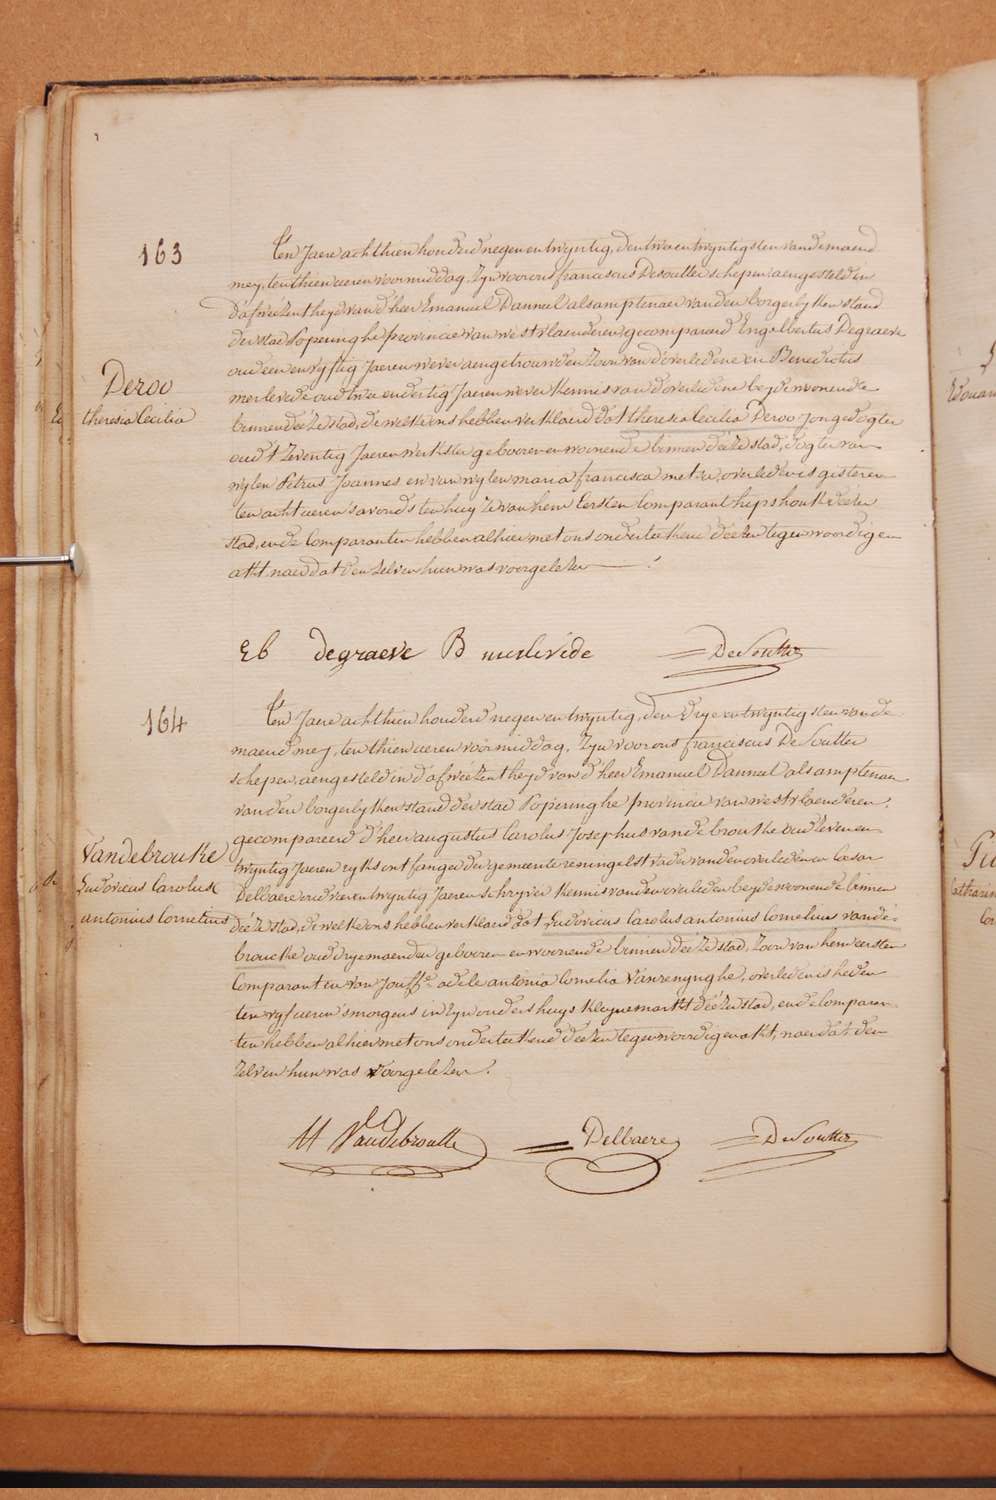 163
Ten Jaere achthien honderd negenentwyntig, den tweentwyntigsten van de maend
mey, ten thien ueren voormiddag, Zyn voor ons franciscus Desoutter schepen aengesteld in
d'afweezentheyd van d'heer Emanuel Danneel als amptenaer van den borgerlyken stand
der stad Poperinghe provincie van westvlaenderen, gecompareerd Engelbertus Degraeve
oud een en vyftig Jaeren wever aengetrouwden Zoon van d'overledene en Benedictus
merlevede oud twee en dertig Jaeren wever kennis van d'overledene beyde woonende
Deroo
theresia Cecilia
binnen deéze stad, de welke ons hebben verklaerd dat theresia Cecilia Deroo Jonge dogter
oudt Zeventig Jaeren werkster gebooren en woonende binnen deéze stad, dogter van
wylen Petrus Joannes en van wylen maria francisca metsu, overleden is gisteren
ten acht ueren s'avonds ten huyze van hem Eersten Comparant hipshoek deézer
stad, en de Comparanten hebben alhier met ons onderteekend deézen tegenwoordigen
akt, naer dat den zelven hun was voorgelezen
Eb degraeve B merlevéde DeSoutter
164
Ten Jaere achthien honderd negen en twyntig, den drye entwyntigsten van de
maend mey, ten thien ueren voormiddag, Zyn voor ons franciscus DeSoutter
schepen, aengesteld in d'afwéézentheyd van d'heer Emanuel Danneel als amptenaer
van den borgerlyken stand der stad Poperinghe provincie van westvlaenderen,
gecompareerd d'heer augustus Carolus Josephus vandebrouke oud Zeven en
twyntig Jaeren ryks ontfanger der gemeente reningelst vader van den overleden en Cæsar
Delbaere oud vier en twyntig Jaeren schryver kennis van den overleden beyde woonende binnen
Vandebrouke
Ludovicus Carolus
antonius Cornelius
deéze stad, de welke ons hebben verklaerd dat Ludovicus Carolus antonius Cornelius vande-
broucke oud drye maenden gebooren en woonende binnen deéze stad, Zoon van hem eersten
Comparant en van Jouffe. adele antonia Cornelia Vanrenynghe, overleden is heden
ten vyf ueren s'morgens in Zyn ouders huys kleyne markt deéze stad, en de Comparan-
ten hebben alhier met ons onderteekend deézen tegenwoordigen akt, naer dat den
zelven hun was voorgelezen.
Vandebroucke Delbaere DeSoutter